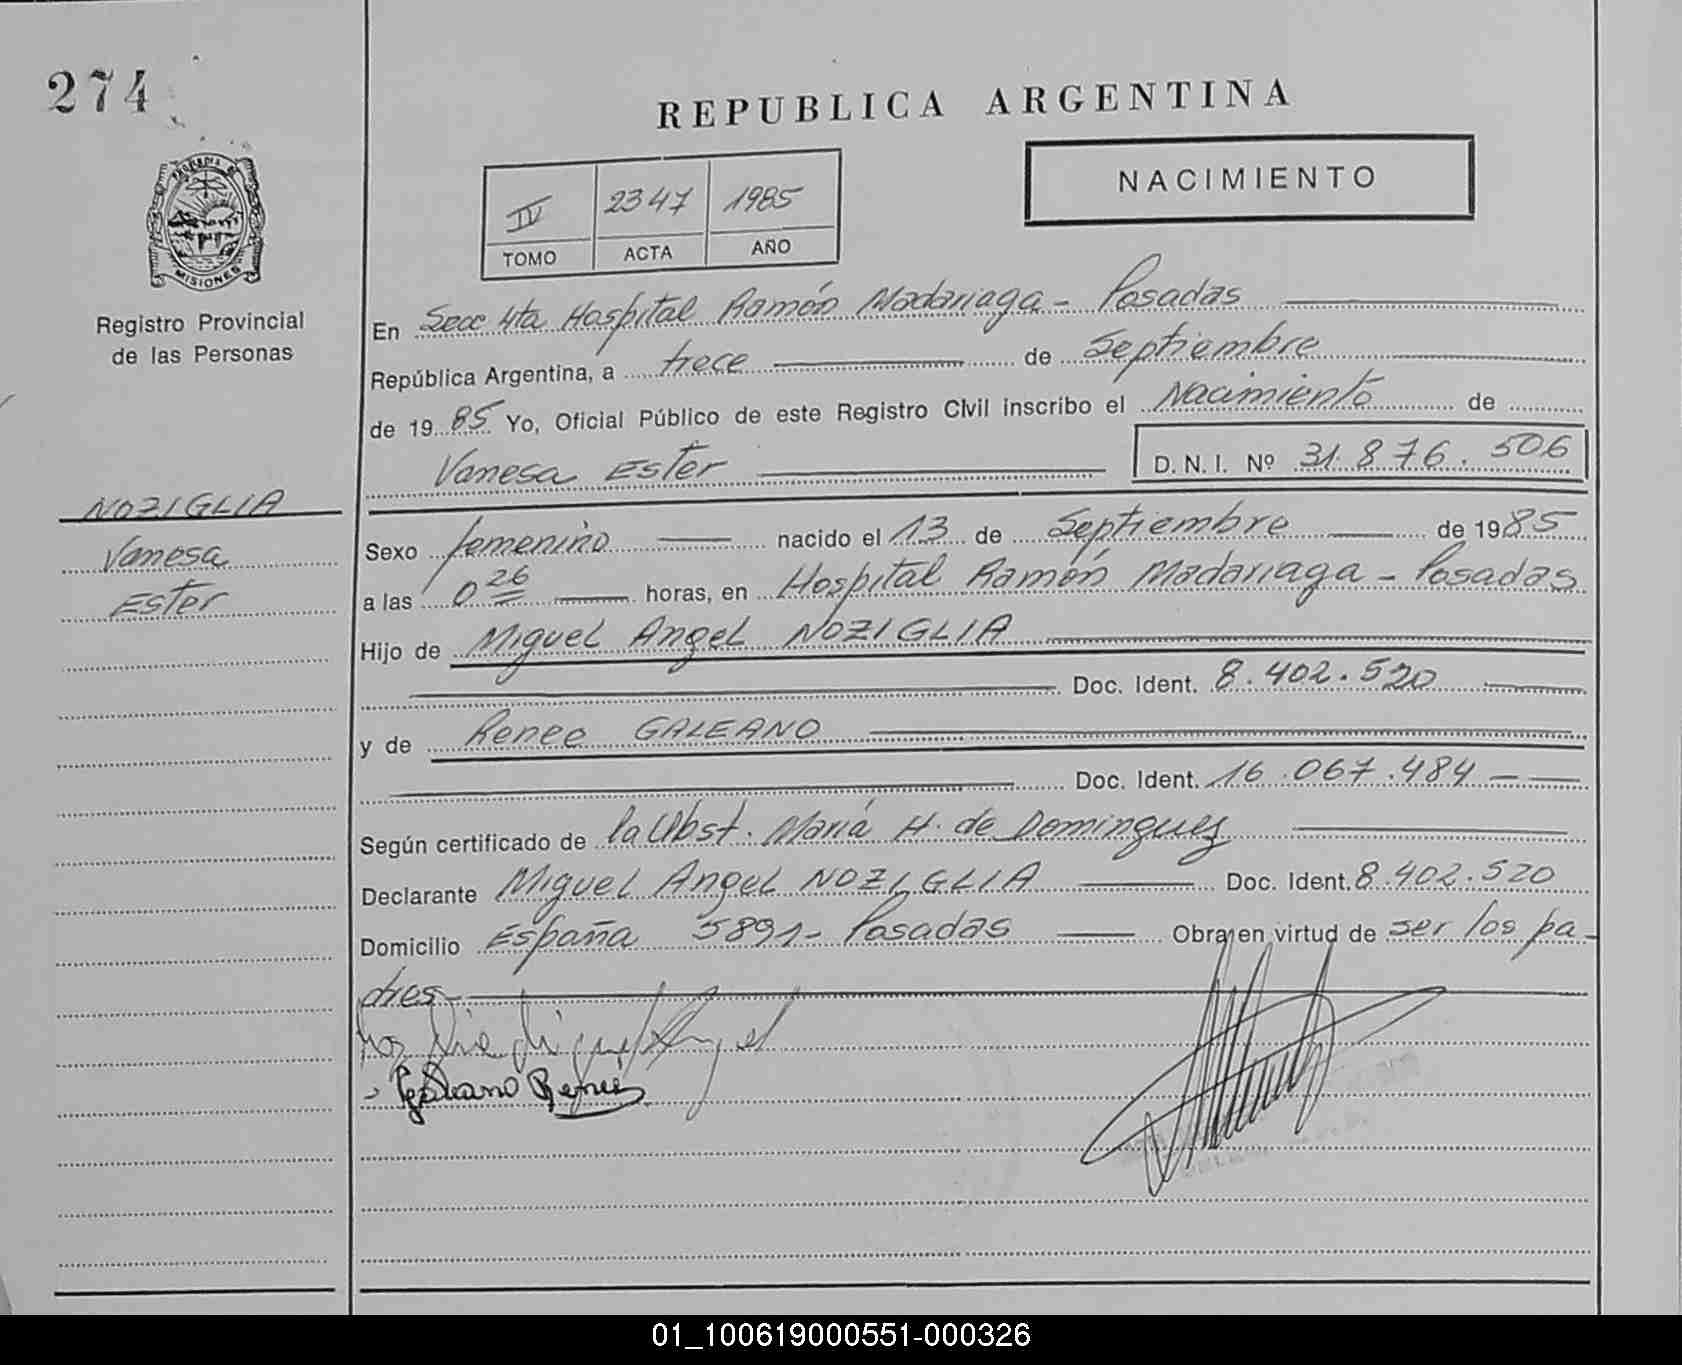 274
REPUBLICA ARGENTINA
NACIMIENTO
IV 2347 1985
TOMO ACTA AÑO
PROVINCIA DE
MISIONES
Registro Provincial
de las Personas
NOZIGLIA
Vanesa
Ester
En Secc 4ta Hospital Ramón Madariaga - Posadas
República Argentina, a trece de Septiembre
de 1985 Yo, Oficial Público de este Registro Civil inscribo el Nacimiento de
Vanesa Ester D.N.I. Nº 31.876.506
Sexo femenino nacido el 13 de Septiembre de 1985
a las 0 26 horas, en Hospital Ramón Madariaga - Posadas
Hijo de Miguel Angel NOZIGLIA
Doc. Ident. 8.402.520
y de Renee GALEANO
Doc. Ident. 16.067.484
Según certificado de la Obst. María H. de Dominguez
Declarante Miguel Angel NOZIGLIA Doc. Ident. 8.402.520
Domicilio España 5891 - Posadas Obra en virtud de ser los pa-
dres
Miguel Angel
Galeano Renee
01_100619000551-000326